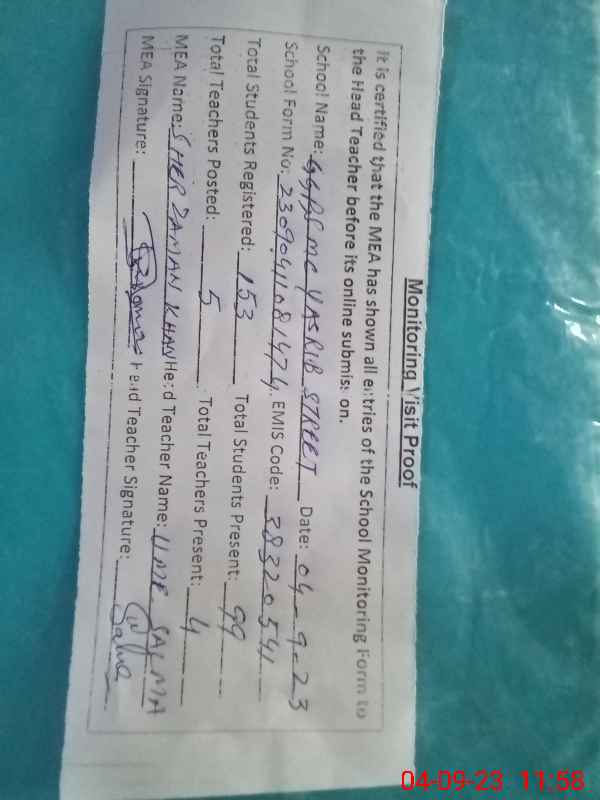 Monitoring Visit Proof
It is certified that the MEA has shown all entries of the School Monitoring Form to
the Head Teacher before its online submission.
School Name: GGPS MC YASRIB STREET Date: 04-9-23
School Form No: 23090411081474 EMIS Code: 38320541
Total Students Registered: 153 Total Students Present: 99
Total Teachers Posted: 5 Total Teachers Present: 4
MEA Name: SHER ZAMAN KHAN Head Teacher Name: UME SALMA
MEA Signature: Head Teacher Signature: Salma
04-09-23 11:58